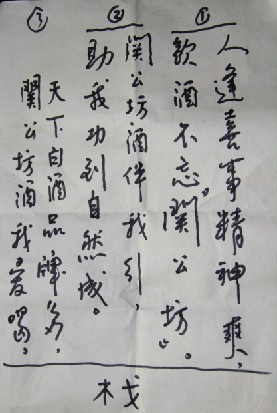 ①
人逢喜事精神爽,
飲酒不忘關公坊。
②
関公坊酒伴我引,
助我功到自然成。
③
天下白酒品牌多,
關公坊酒我爱喝。
木戈